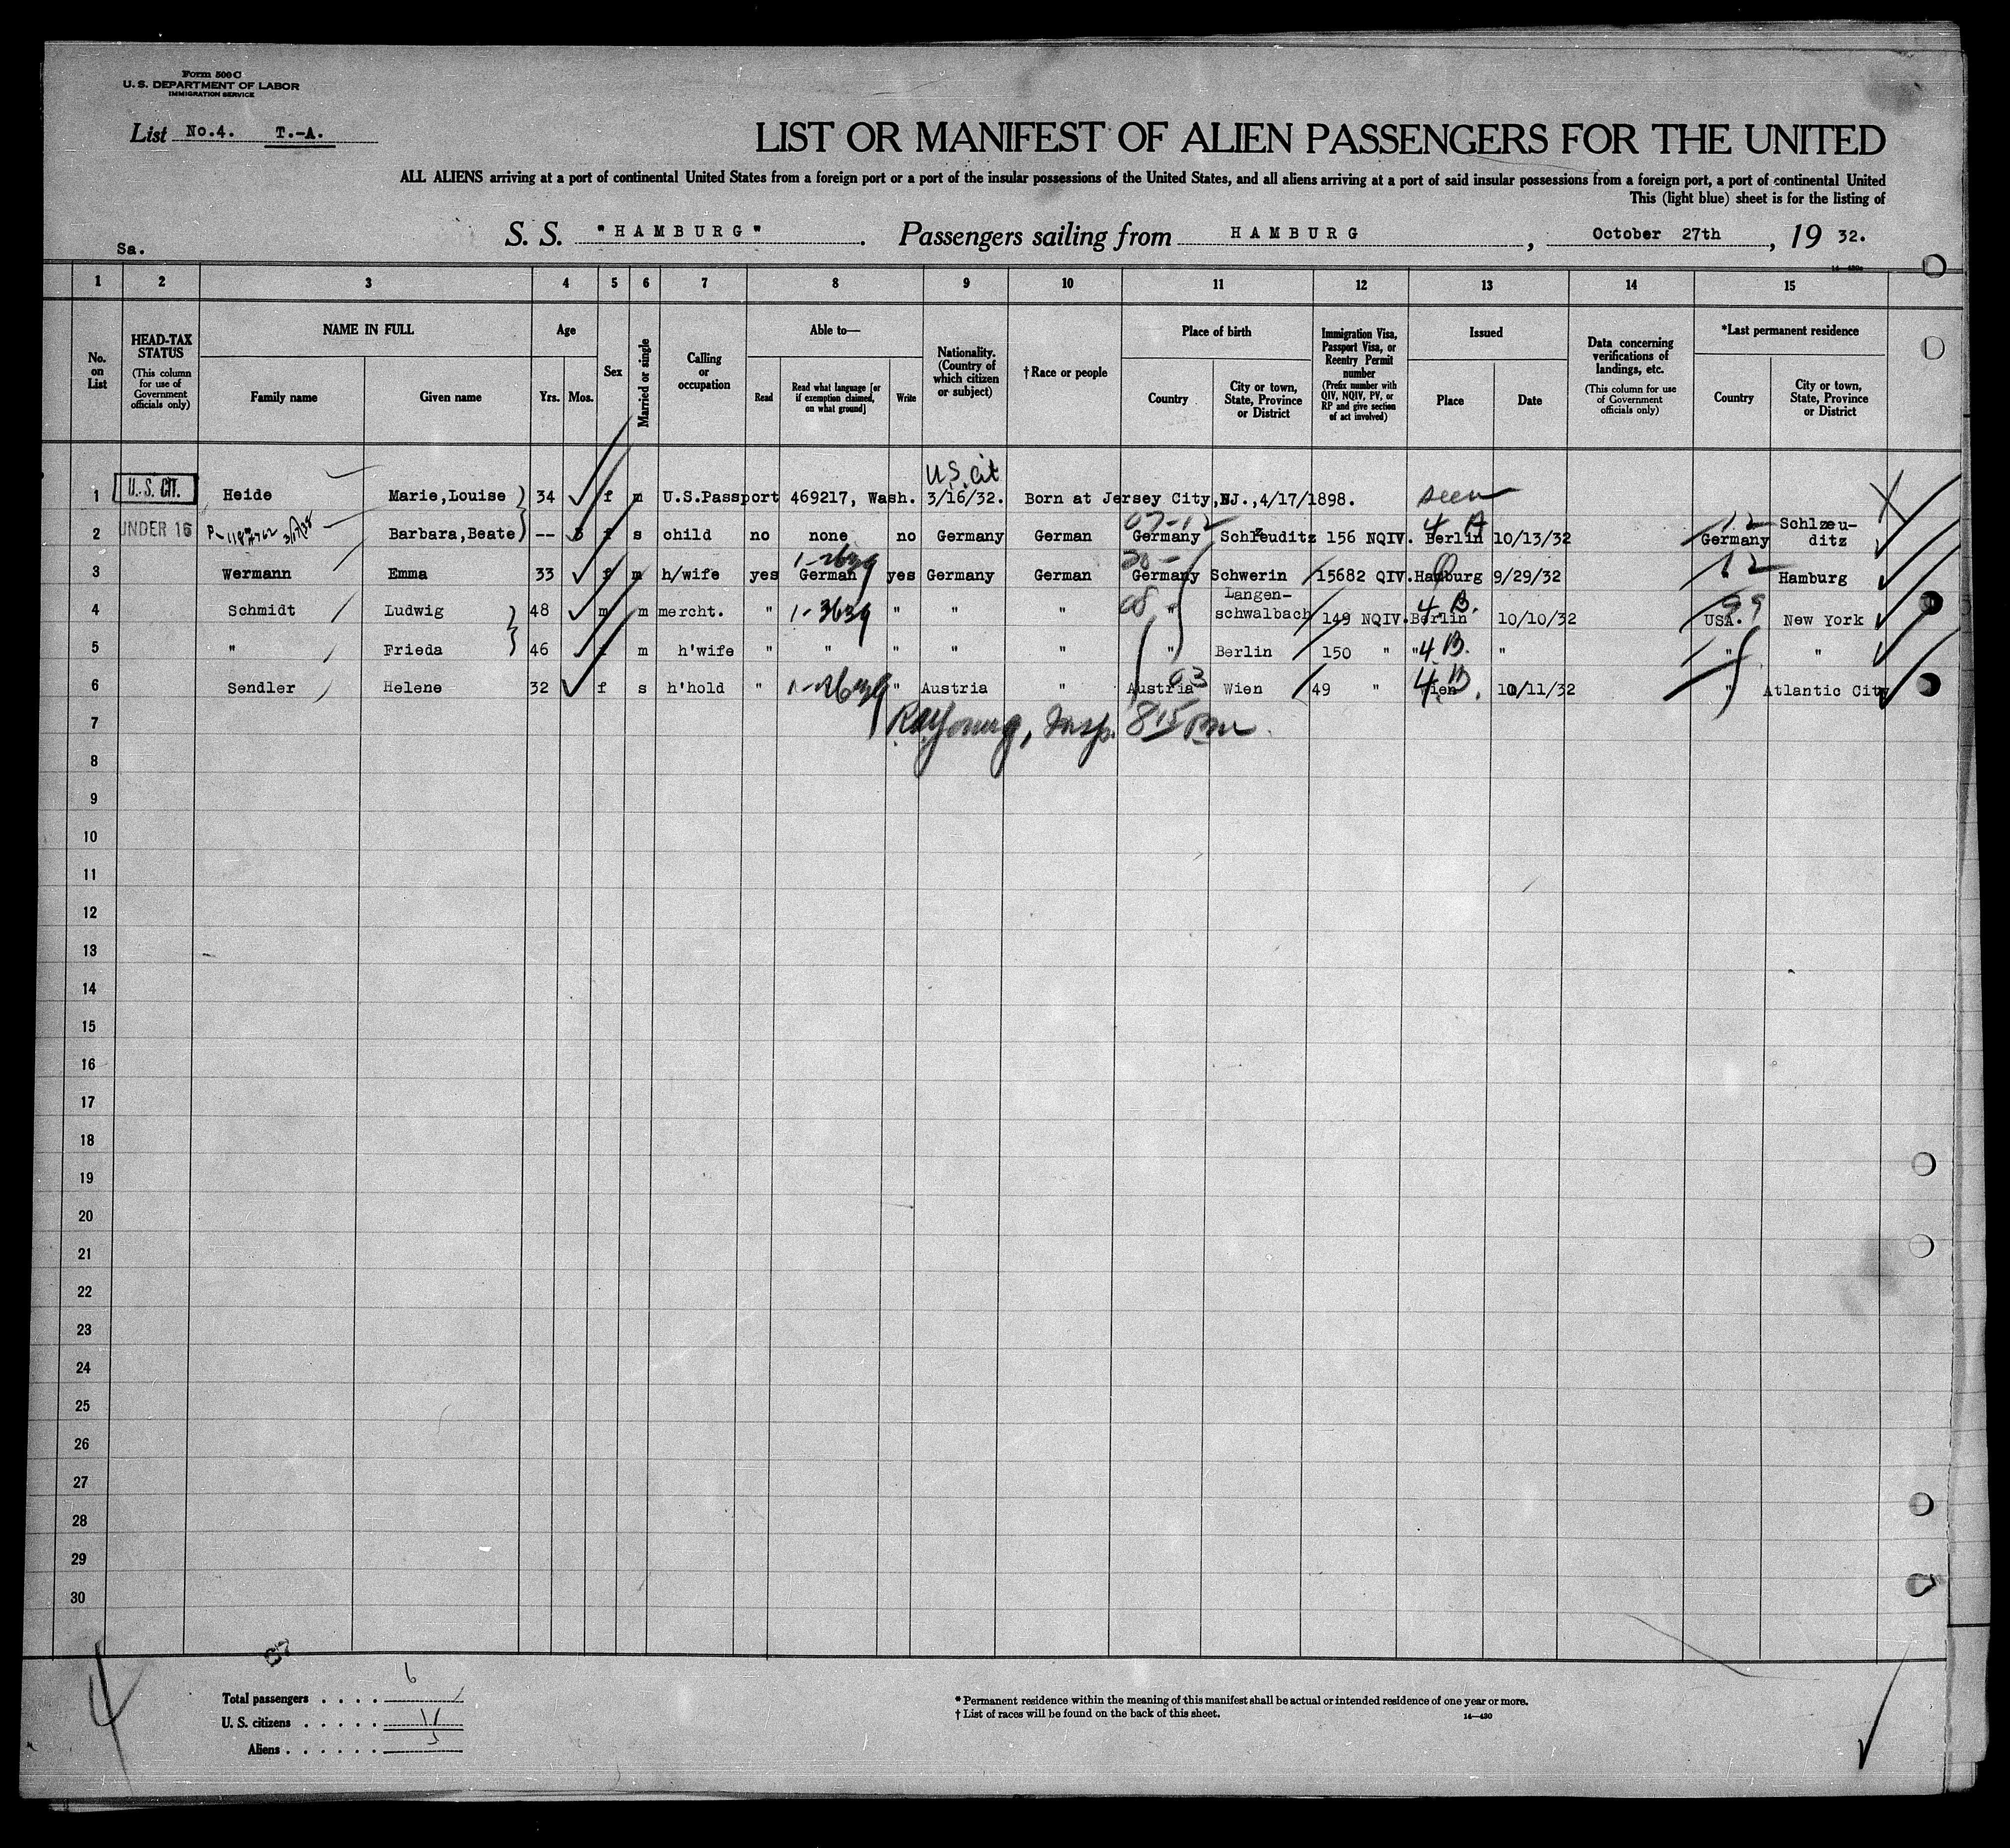 Form 500 C
U. S. DEPARTMENT OF LABOR
IMMIGRATION SERVICE
List No.4. T.-A.
LIST OR MANIFEST OF ALIEN PASSENGERS FOR THE UNITED
ALL ALIENS arriving at a port of continental United States from a foreign port or a port of the insular possessions of the United States, and all aliens arriving at a port of said insular possessions from a foreign port, a port of continental United
This (light blue) sheet is for the listing of
Sa.
S. S. "HAMBURG". Passengers sailing from HAMBURG, October 27th, 19 32.
14—430a
1 2 3 4 5 6 7 8 9 10 11 12 13 14 15
No. on List
HEAD-TAX STATUS (This column for use of Government officials only)
NAME IN FULL
Family name Given name
Age
Yrs. Mos.
Sex
Married or single
Calling or occupation
Able to—
Read Read what language [or if exemption claimed, on what ground] Write
Nationality. (Country of which citizen or subject)
†Race or people
Place of birth
Country City or town, State, Province or District
Immigration Visa, Passport Visa, or Reentry Permit number (Prefix number with QIV, NQIV, PV, or RP and give section of act involved)
Issued
Place Date
Data concerning verifications of landings, etc. (This column for use of Government officials only)
*Last permanent residence
Country City or town, State, Province or District
U.S. Cit
1 U.S. CIT. Heide Marie,Louise 34 f m U.S.Passport 469217, Wash. 3/16/32. Born at Jersey City,NJ.,4/17/1898. seen
2 UNDER 16 Barbara,Beate -- 5 f s child no none no Germany German Germany Schleuditz 156 NQIV. Berlin 10/13/32 Germany Schlzeu-ditz
07-12 4 A 12
3 Wermann Emma 33 f m h/wife yes German yes Germany German Germany Schwerin 15682 QIV. Hamburg 9/29/32 Hamburg
12
4 Schmidt Ludwig 48 m m mercht. " 1-3639 " " " " Langen-schwalbach 149 NQIV. Berlin 10/10/32 USA. New York
4 B. 99
5 " Frieda 46 f m h'wife " " " " " " Berlin 150 " " " " "
4 B.
6 Sendler Helene 32 f s h'hold " " Austria " Austria Wien 49 " Wien 10/11/32 " Atlantic City
03 4 B.
7 Insp. 8 15 Pm
8
9
10
11
12
13
14
15
16
17
18
19
20
21
22
23
24
25
26
27
28
29
30
4
Total passengers . . . . 6
U. S. citizens . . . . . 1
Aliens . . . . . . 5
* Permanent residence within the meaning of this manifest shall be actual or intended residence of one year or more.
† List of races will be found on the back of this sheet.
14—430